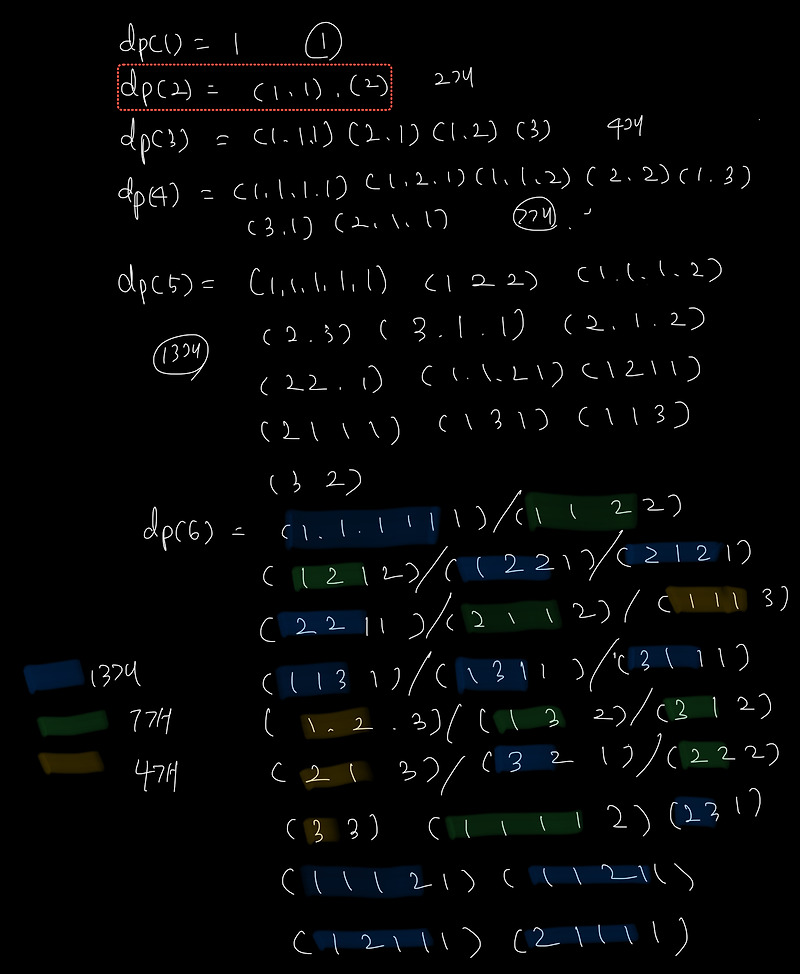 dp(1) = 1 1
dp(2) = (1.1).(2) 2개
dp(3) = (1.1.1) (2.1) (1.2) (3) 4개
dp(4) = (1.1.1.1) (1.2.1) (1.1.2) (2.2) (1.3)
(3.1) (2.1.1) 7개.
dp(5) = (1,1.1.1,1) (1 2 2) (1.1.1.2)
(2.3) (3.1.1) (2.1.2)
13개
(22.1) (1.1.21) (1211)
(2111) (131) (113)
(3 2)
dp(6) = (1.1.1111)/(1122)
(1212)/(1221)/(2121)
(2211)/(2112)/(1113)
13개 (1131)/(1311)/(3111)
7개 (1.2.3)/(132)/(312)
4개 (213)/(321)/(222)
(33) (11112) (231)
(11121) (11211)
(12111) (21111)